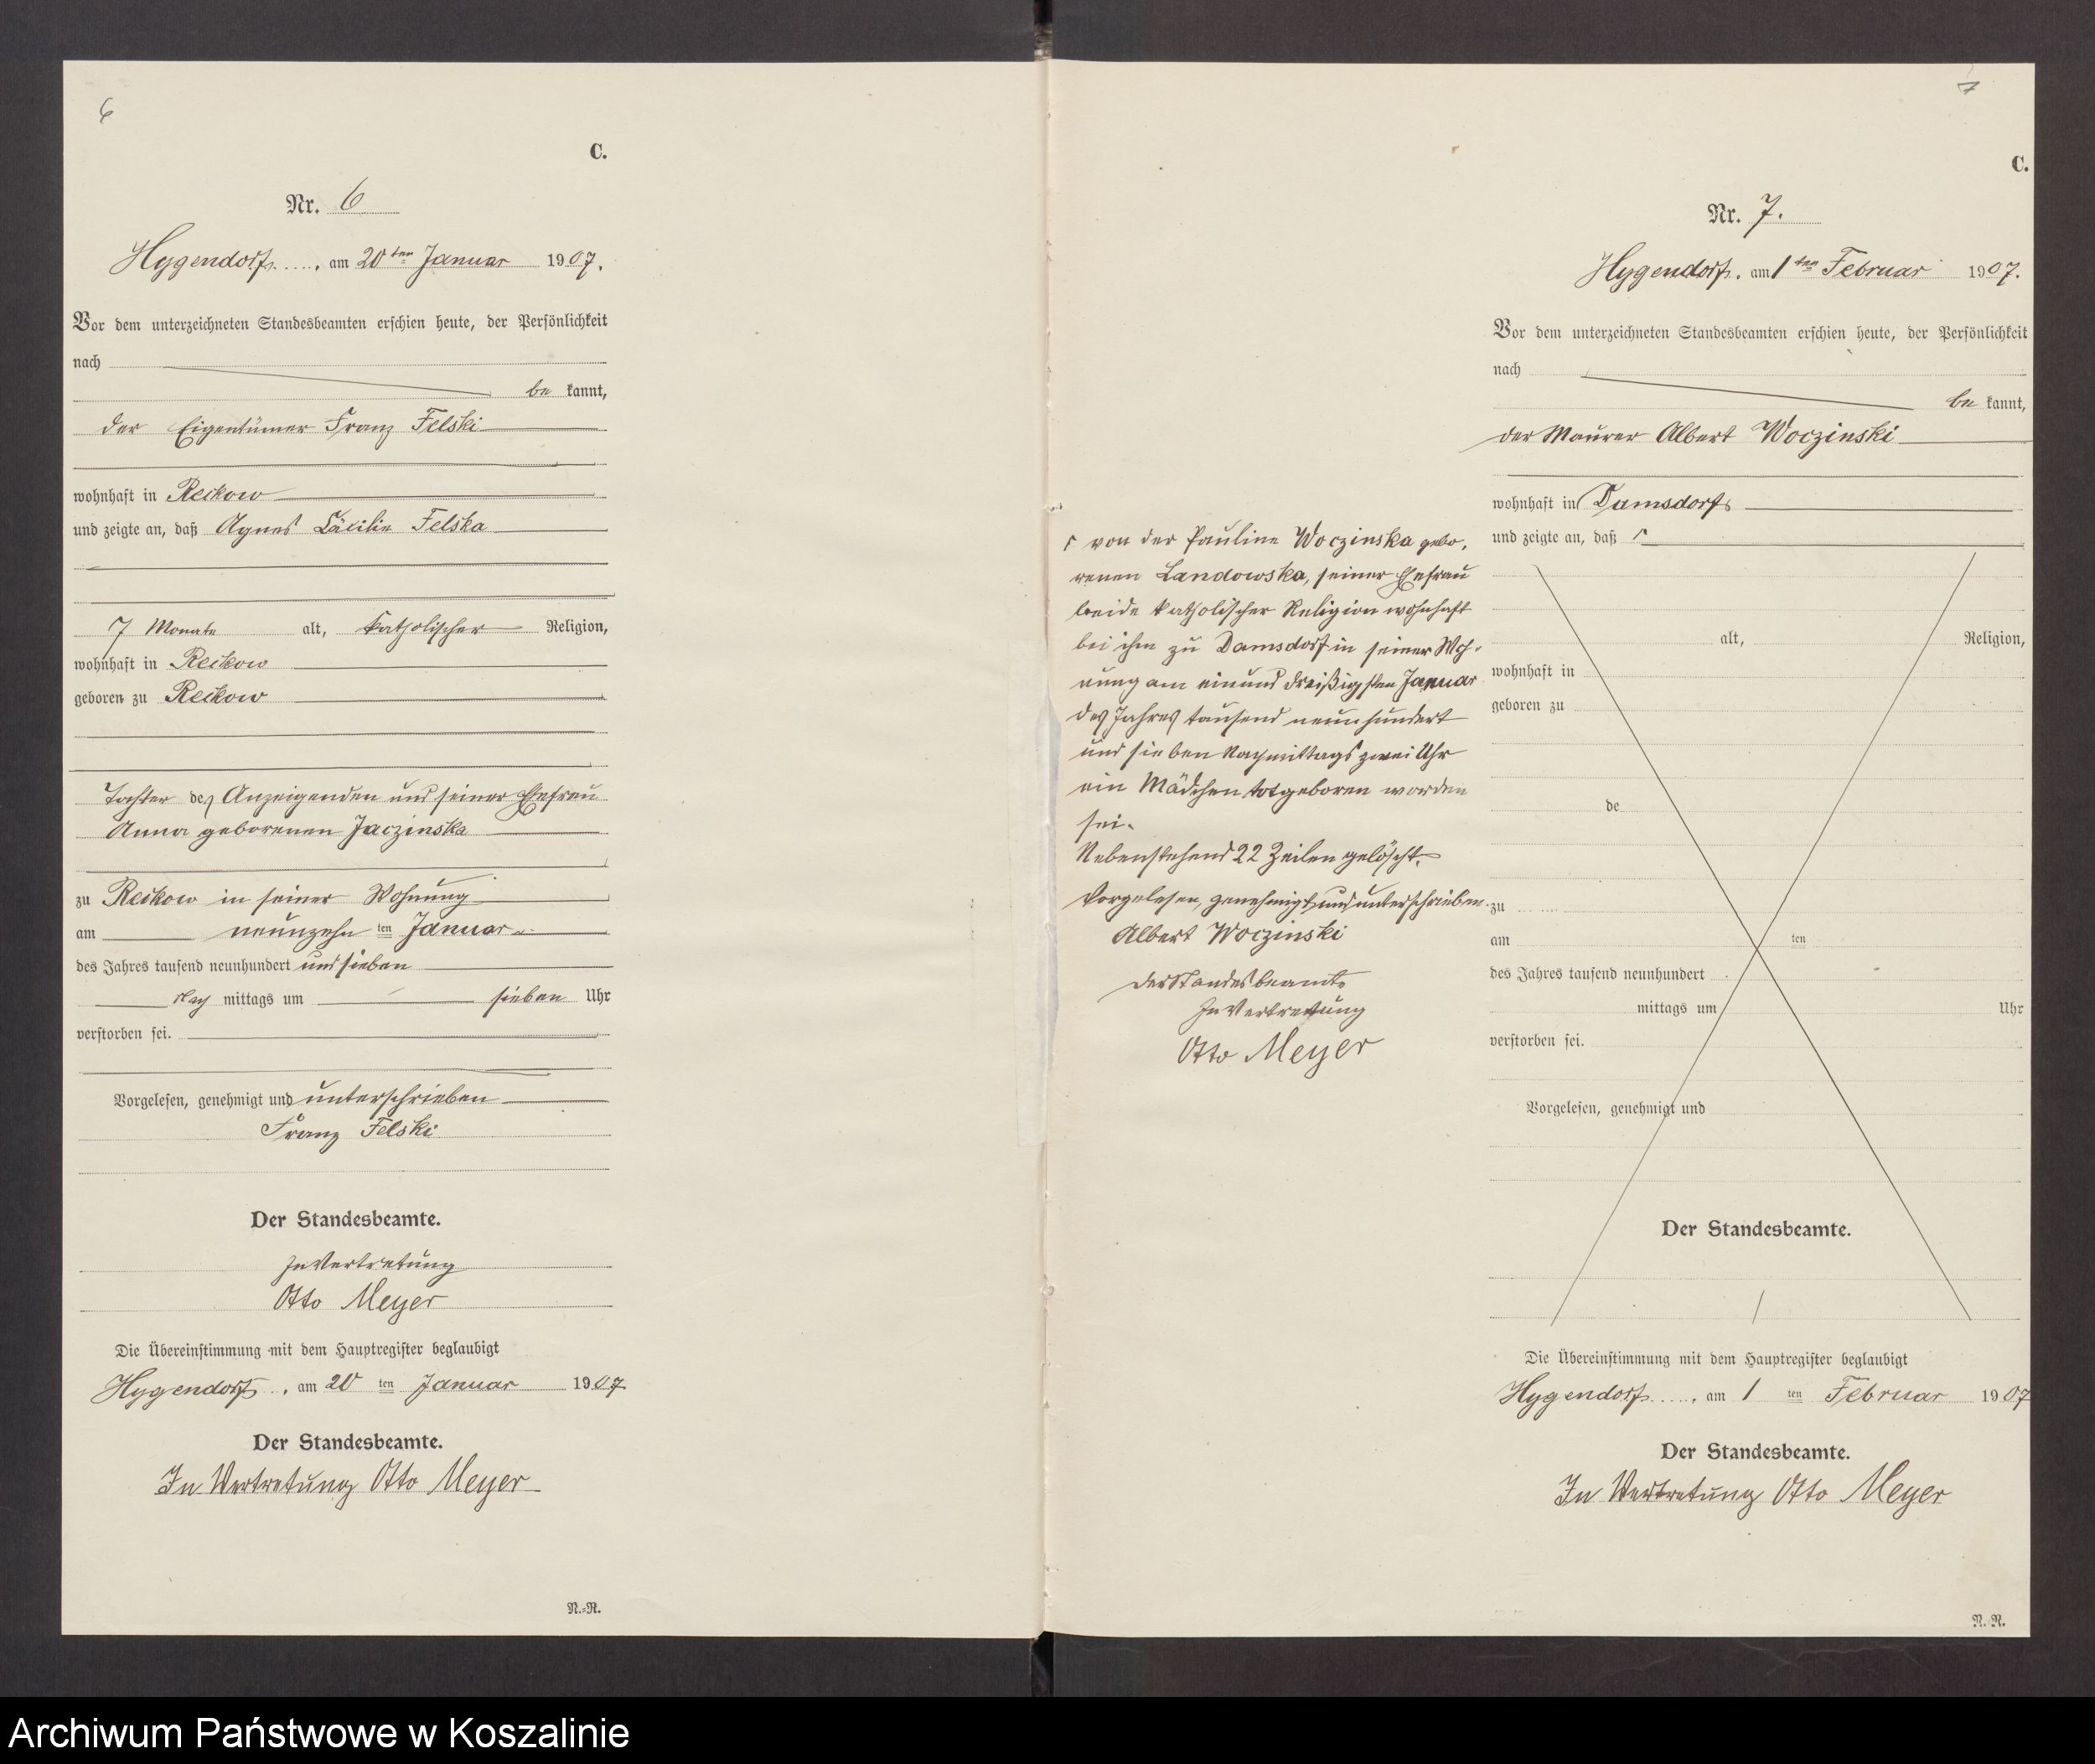 6
C.
Nr. 6
Hygendorf, am 20ten Januar 1907.
Vor dem unterzeichneten Standesbeamten erschien heute, der Persönlichkeit
nach
be kannt,
der Eigentümer Franz Felski
wohnhaft in Reckow
und zeigte an, daß Agnes Cäcilie Felska
7 Monate alt, katholischer Religion,
wohnhaft in Reckow
geboren zu Reckow
Tochter des Anzeigenden und seiner Ehefrau
Anna geborenen Jaczinska
zu Reckow in seiner Wohnung
am neunzehn ten Januar
des Jahres tausend neunhundert und sieben
Nach mittags um sieben Uhr
verstorben sei.
Vorgelesen, genehmigt und unterschrieben
Franz Felski
Der Standesbeamte.
In Vertretung
Otto Meyer
Die Übereinstimmung mit dem Hauptregister beglaubigt
Hygendorf, am 20 ten Januar 1907
Der Standesbeamte.
In Vertretung Otto Meyer
N.-R.
7
C.
Nr. 7.
Hygendorf, am 1ten Februar 1907.
Vor dem unterzeichneten Standesbeamten erschien heute, der Persönlichkeit
nach
be kannt,
der Maurer Albert Woczinski
wohnhaft in Damsdorf
und zeigte an, daß ┌
┌ von der Pauline Woczinska gebo-
renen Landowska, seiner Ehefrau
beide katholischer Religion wohnhaft
bei ihm zu Damsdorf in seiner Woh-
nung am einund dreißigsten Januar
des Jahres tausend neunhundert
und sieben Nachmittags zwei Uhr
ein Mädchen totgeboren worden
sei.
Nebenstehend 22 Zeilen gelöscht.
Vorgelesen, genehmigt und unterschrieben.
Albert Woczinski
Der Standesbeamte
In Vertretung
Otto Meyer
alt, Religion,
wohnhaft in
geboren zu
de
zu
am ten
des Jahres tausend neunhundert
mittags um Uhr
verstorben sei.
Vorgelesen, genehmigt und
Der Standesbeamte.
Die Übereinstimmung mit dem Hauptregister beglaubigt
Hygendorf, am 1 ten Februar 1907
Der Standesbeamte.
In Vertretung Otto Meyer
N.-R.
Archiwum Państwowe w Koszalinie